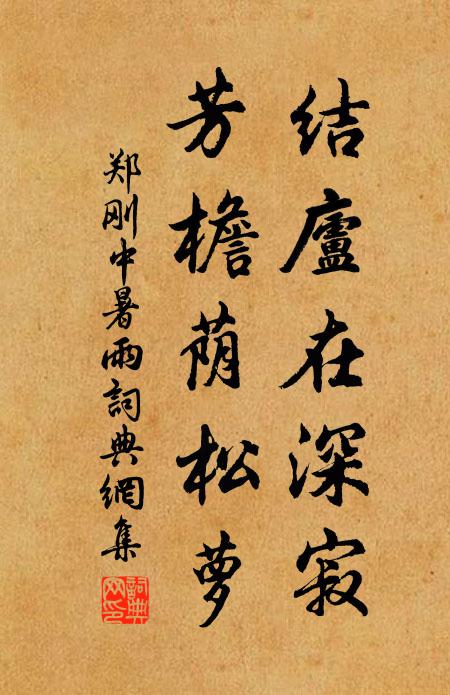 结廬在深寂
芳檐荫松萝
郑刚中暑雨詞典網集
詞典网印